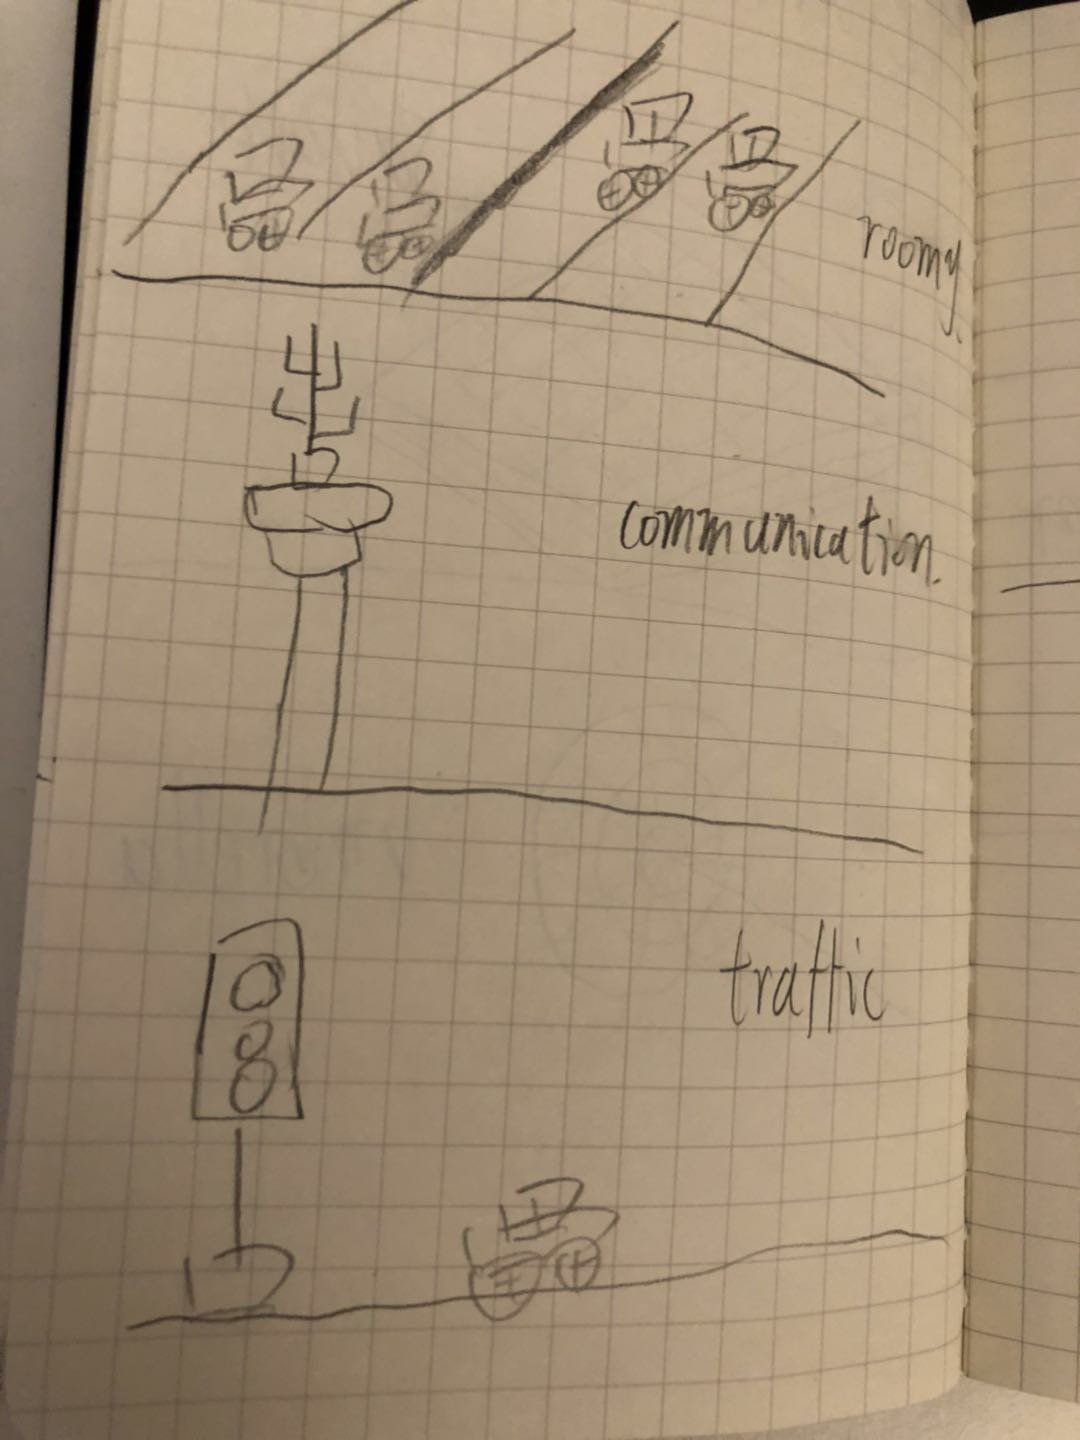 roomy.
communication.
traffic